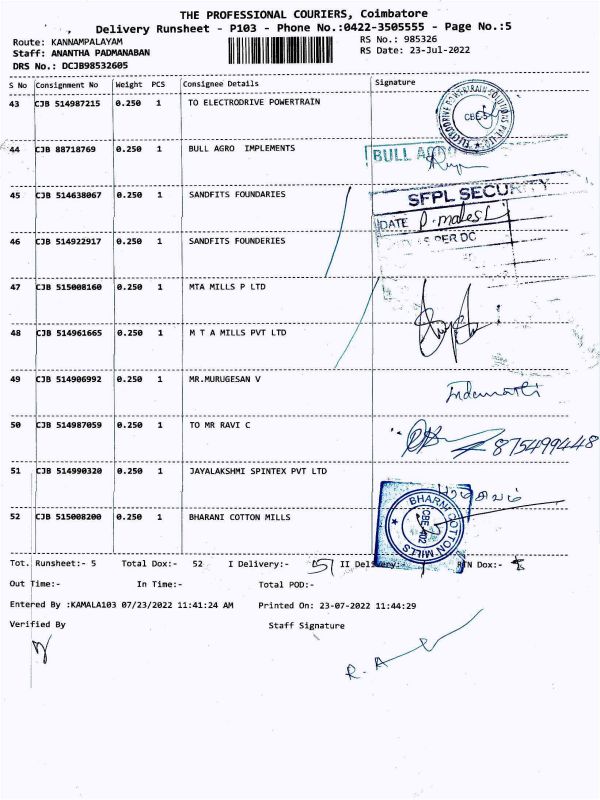 THE PROFESSIONAL COURIERS, Coimbatore
Delivery Runsheet - P103 - Phone No.:0422-3505555 - Page No.:5
Route: KANNAMPALAYAM RS No.: 985326
Staff: ANANTHA PADMANABAN RS Date: 23-Jul-2022
DRS No.: DCJB98532605
S No Consignment No Weight PCS Consignee Details Signature
43 CJB 514987215 0.250 1 TO ELECTRODRIVE POWERTRAIN
ELECTRODRIVE POWERTRAIN SOLUTIONS PVT LTD
CBE
44 CJB 88718769 0.250 1 BULL AGRO IMPLEMENTS
BULL AGRO
45 CJB 514638067 0.250 1 SANDFITS FOUNDARIES
SFPL SECURITY
DATE
46 CJB 514922917 0.250 1 SANDFITS FOUNDERIES
AS PER DC
47 CJB 515008160 0.250 1 MTA MILLS P LTD
48 CJB 514961665 0.250 1 M T A MILLS PVT LTD
49 CJB 514906992 0.250 1 MR.MURUGESAN V
50 CJB 514987059 0.250 1 TO MR RAVI C
8754999448
51 CJB 514990320 0.250 1 JAYALAKSHMI SPINTEX PVT LTD
52 CJB 515008200 0.250 1 BHARANI COTTON MILLS
BHARNI COTTON MILLS
CBE 402
Tot. Runsheet:- 5 Total Dox:- 52 I Delivery:- 51 II Delivery:- RTN Dox:-
Out Time:- In Time:- Total POD:-
Entered By :KAMALA103 07/23/2022 11:41:24 AM Printed On: 23-07-2022 11:44:29
Verified By Staff Signature
R. A